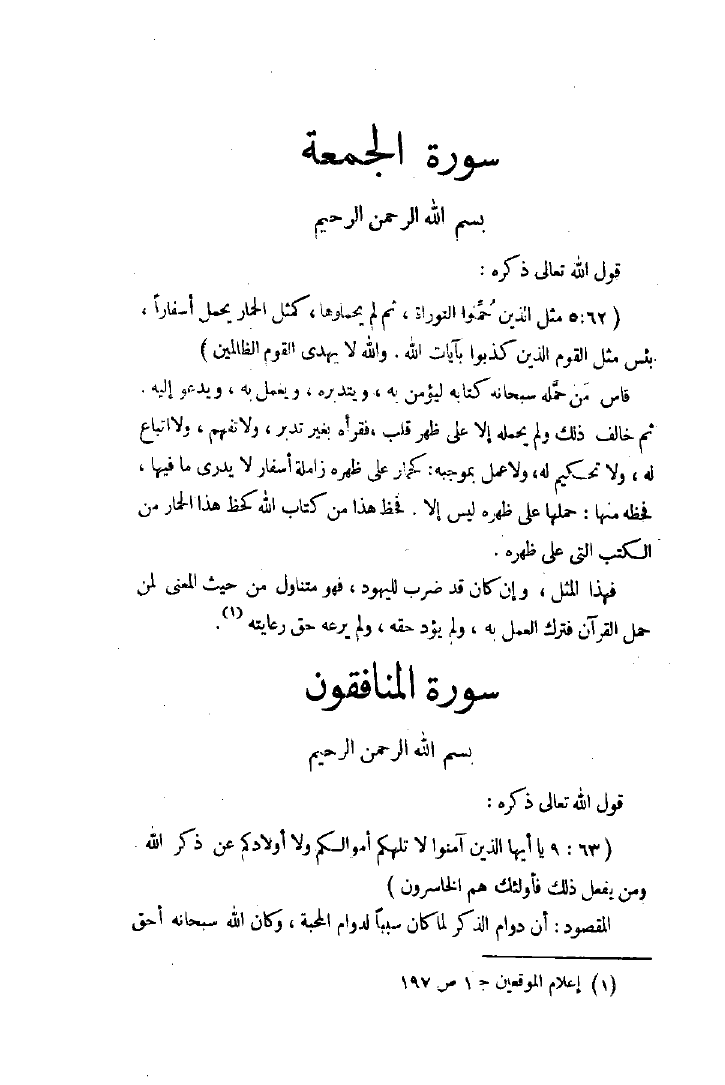 سورة الجمعة
بسم الله الرحمن الرحيم
قول الله تعالى ذكره :
( ٥:٦٢ مثل الذين حُمِّلوا التوراة ، ثم لم يحملوها ، كمثل الحمار يحمل أسفاراً ،
بئس مثل القوم الذين كذبوا بآيات الله . والله لا يهدى القوم الظالمين )
قاس مَن حمَّله سبحانه كتابه ليؤمن به ، ويتدبره ، ويعمل به ، ويدعو إليه .
ثم خالف ذلك ولم يحمله إلا على ظهر قلب ،فقرأه بغير تدبر ، ولاتفهم ، ولااتباع
له ، ولا تحكيم له، ولاعمل بموجبه: كحمار على ظهره زاملة أسفار لا يدرى ما فيها ،
فحظه منها : حملها على ظهره ليس إلا . فحظ هذا من كتاب الله كحظ هذا الحمار من
الكتب التى على ظهره .
فهذا المثل ، وإن كان قد ضرب لليهود ، فهو متناول من حيث المعنى لمن
حمل القرآن فترك العمل به ، ولم يؤد حقه ، ولم يرعه حق رعايته (١) .
سورة المنافقون
بسم الله الرحمن الرحيم
قول الله تعالى ذكره :
( ٦٣ : ٩ يا أيها الذين آمنوا لا تلهكم أموالكم ولا أولادكم عن ذكر الله .
ومن يفعل ذلك فأولئك هم الخاسرون )
المقصود : أن دوام الذكر لما كان سبباً لدوام المحبة ، وكان الله سبحانه أحق
(١) إعلام الموقعين جـ ١ ص ١٩٧